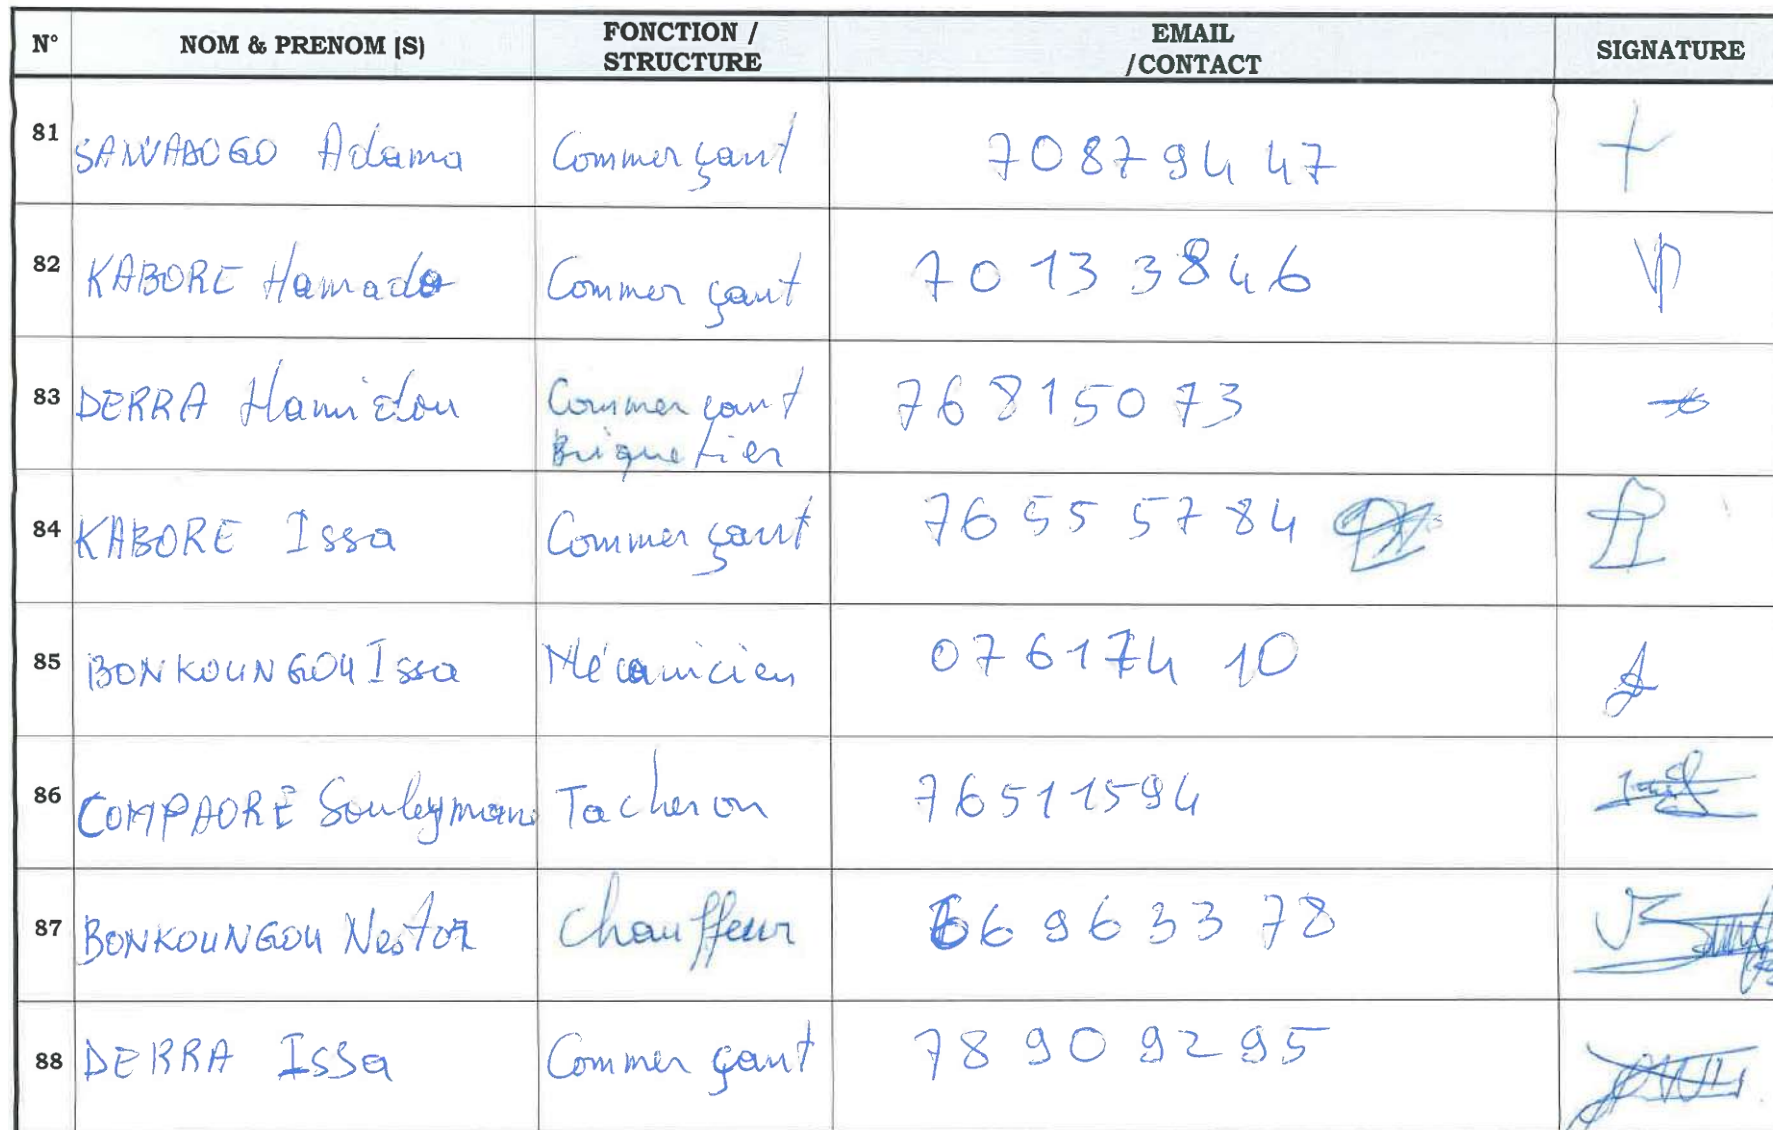 N° NOM & PRENOM (S) FONCTION / STRUCTURE EMAIL /CONTACT SIGNATURE
81 SAWADOGO Adama Commerçant 70879447
82 KABORE Hamado Commerçant 70133846
83 DERRA Hamidou Commerçant Briquetier 76815073
84 KABORE Issa Commerçant 76555784
85 BONKOUNGOU Issa Mécanicien 07617410
86 COMPAORE Souleymane Tacheron 76511594
87 BONKOUNGOU Nestor Chauffeur 66963378
88 DERRA Issa Commerçant 78909295